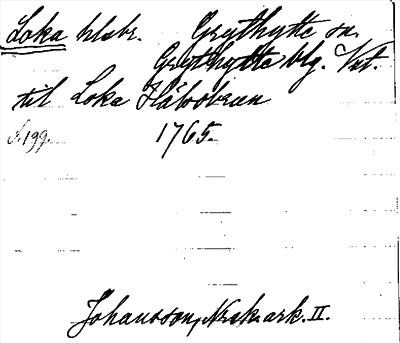 Loka hlsbr. Grythytte sn.
Grythytte blg. Vst.
til Loka Hälsobrun
s. 199. 1765.
Johansson, Nrak. ark. II.